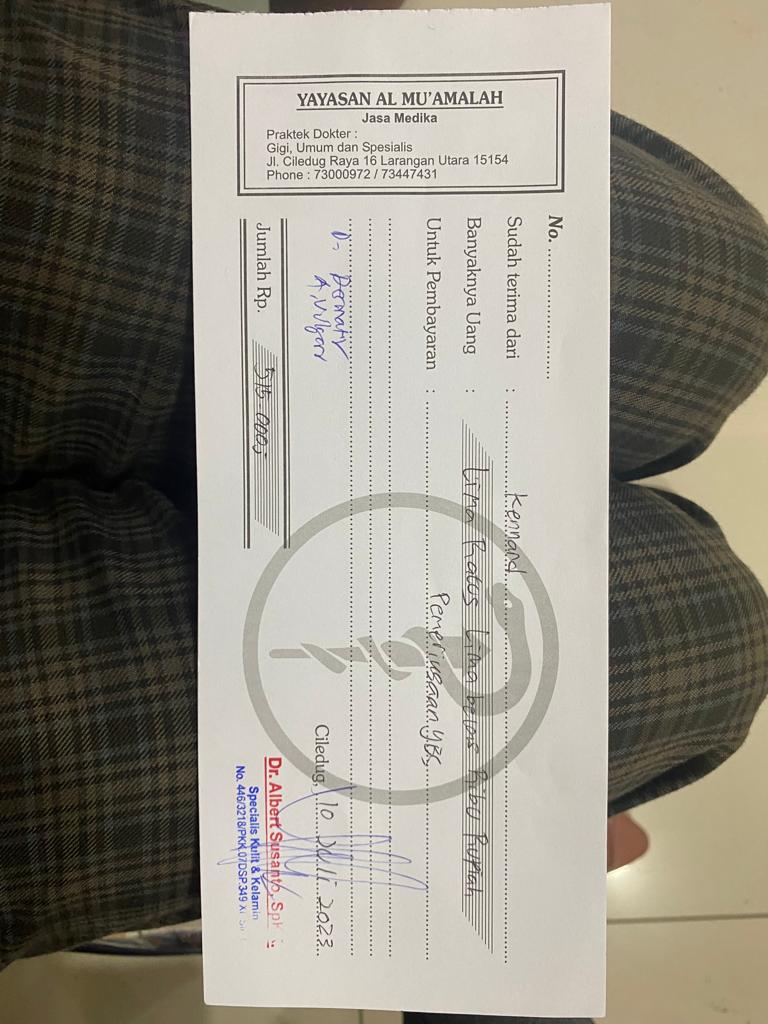 YAYASAN AL MU'AMALAH
Jasa Medika
Praktek Dokter :
Gigi, Umum dan Spesialis
Jl. Ciledug Raya 16 Larangan Utara 15154
Phone : 73000972 / 73447431
No. ..........................
Sudah terima dari : Kennard
Banyaknya Uang : Lima Ratus Lima belas Ribu Rupiah
Untuk Pembayaran : Pemeriksaan YBS
Ciledug, 10 Juli 2023
Jumlah Rp. 515.000,
Dr. Albert Susanto,
Specialis Kulit & Kelamin